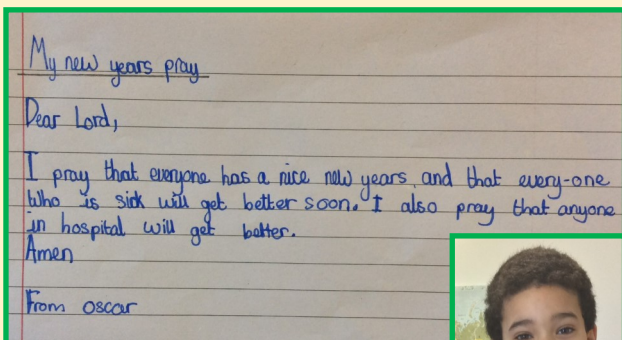 My new years pray
Dear Lord,
I pray that everyone has a nice new years and that every-one
who is sick will get better soon. I also pray that anyone
in hospital will get better.
Amen
From oscar